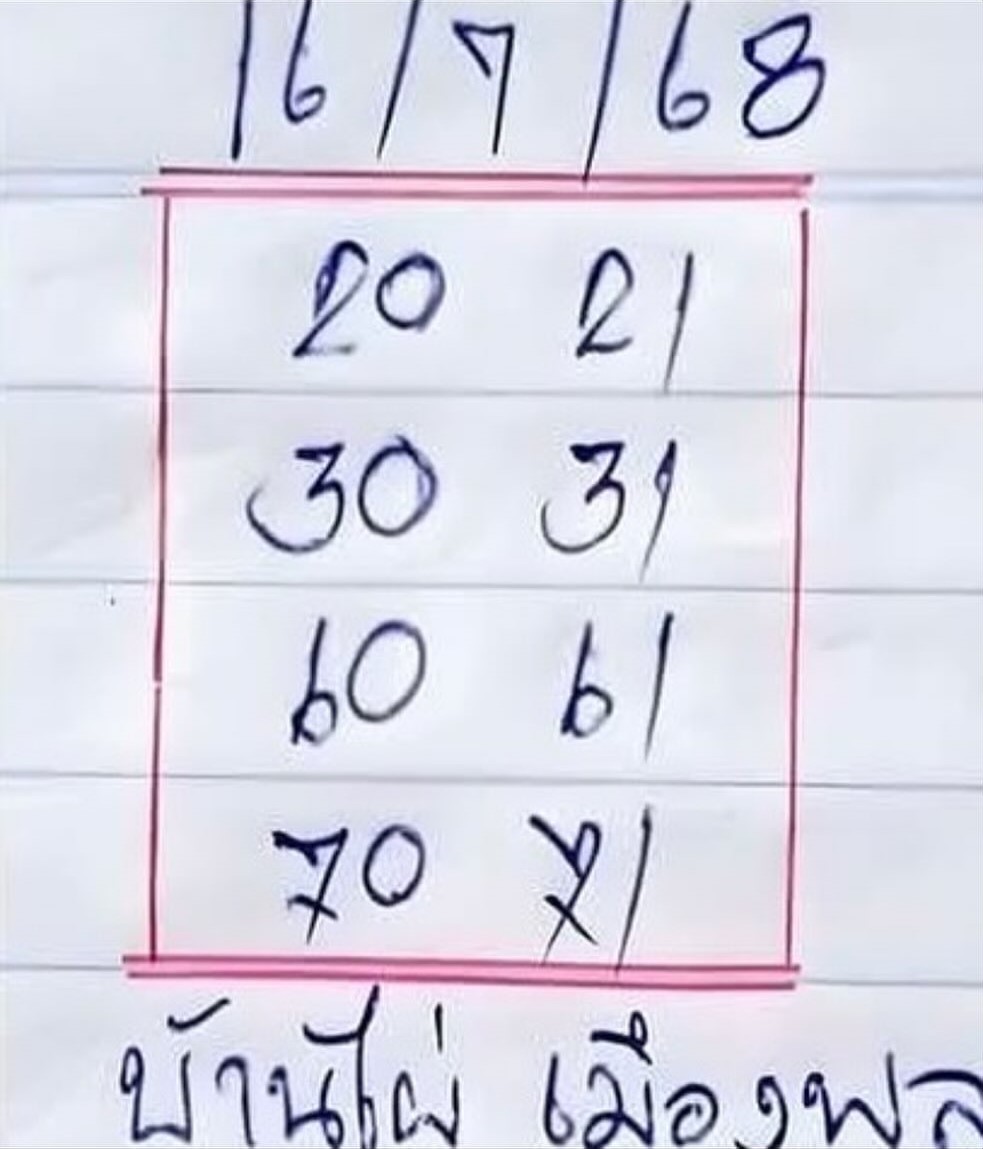 16/7/68
20 21
30 31
60 61
70 71
บ้านไผ่ เมืองพล